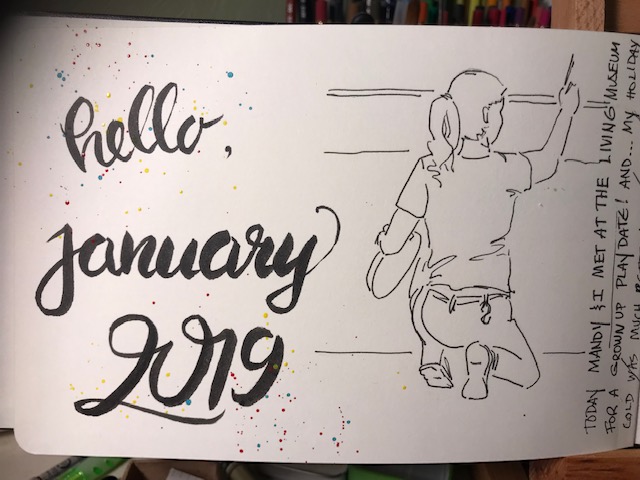 hello,
january
2019
TODAY MANDY & I MET AT THE LIVING MUSEUM
FOR A GROWN UP PLAY DATE! AND... MY HOLIDAY
COLD WAS MUCH